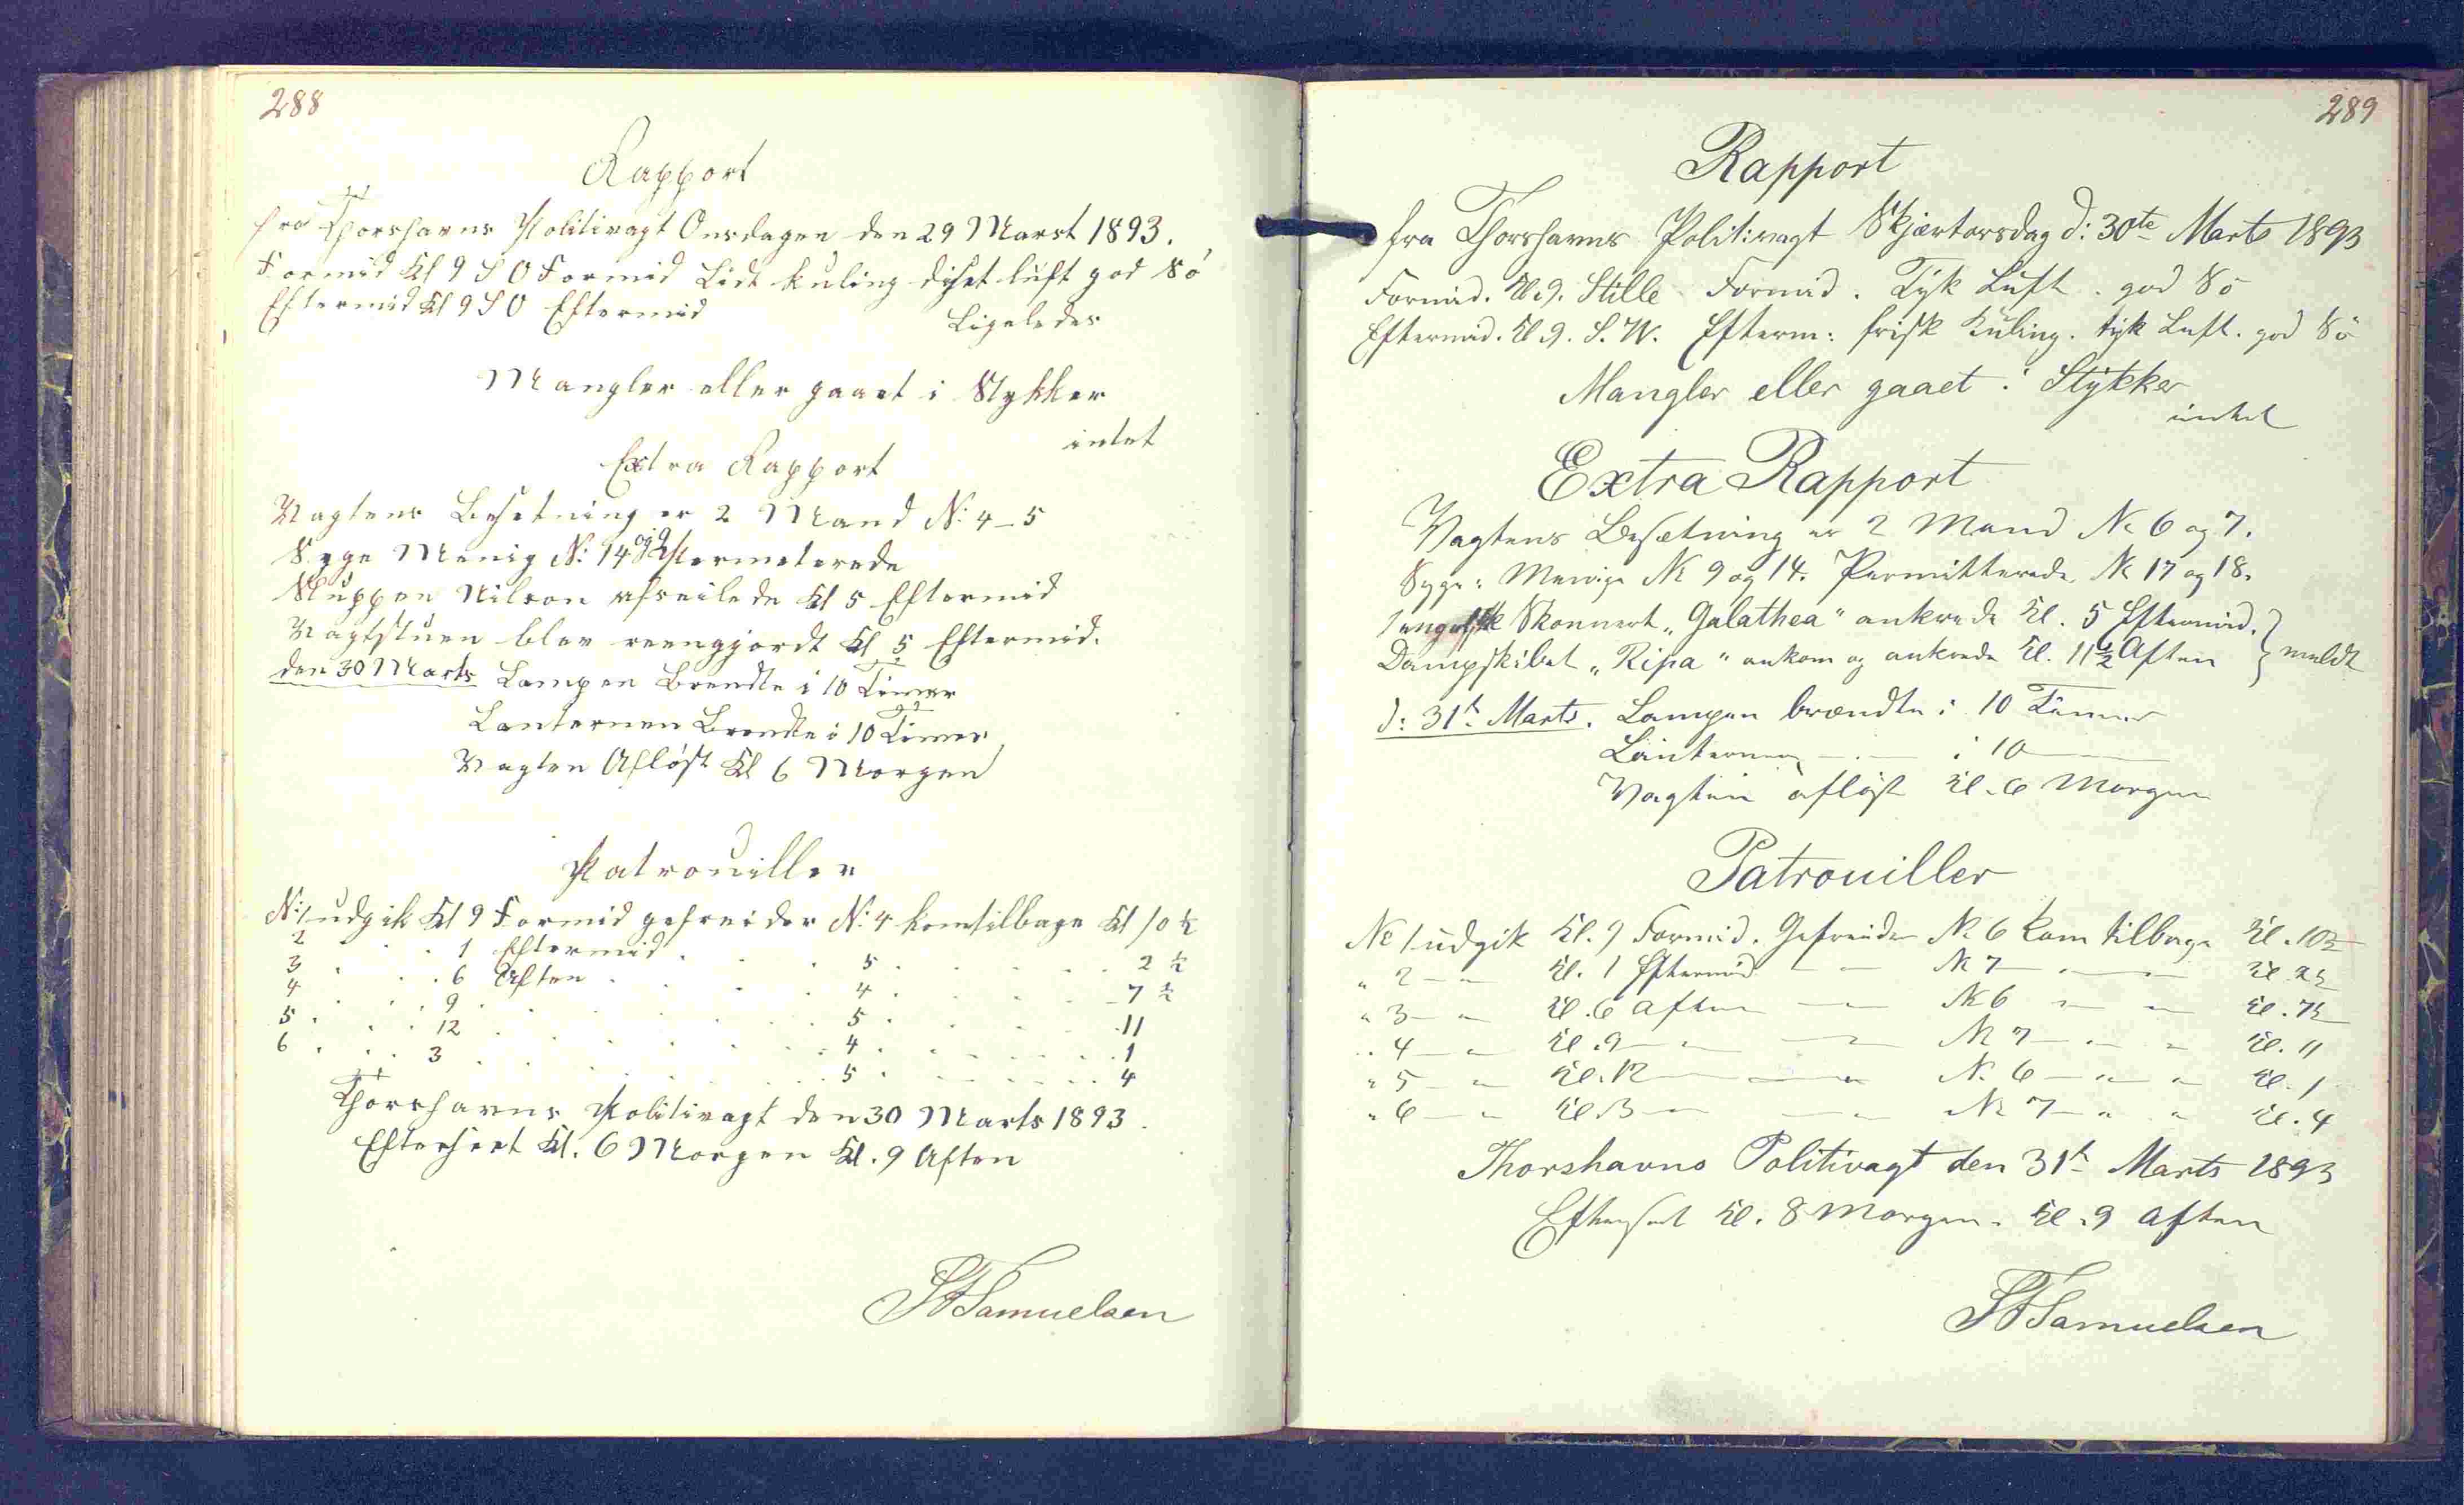 288
Rapport
fra Thorshavns Politivagt Onsdagen den 29 Marst 1893.
Formid Kl 9 S O Formid Lidt kuling diset luft god Sö
Eftermid Kl 9 S O Eftermid Ligeledes
Mangler eller gaaet i Stykker
intet
Extra Rapport
Vagtens Besetning er 2 Mand N: 4-5
Syge Menig N: 14 og 9 Permeterede
Sluppen Nilson afseilede Kl 5 Eftermid
Vagtstuen blev reengjordt Kl 5 Eftermid.
den 30 Marts Lampen Brendte i 10 Timer
Lanternen Brendte i 10 Timer
Vagten Afløst Kl 6 Morgen
Patrouiller
N: 1 udgik Kl 9 Formid gefreider N: 4 kom tilbage Kl 10 ½
2 . . . 1 Eftermid . . . 5 . . . . 2 ½
3 . . . 6 Aften . . . 4 . . . . 7 ½
4 . . . 9 . . . . 5 . . . . 11
5 . . . 12 . . . . 4 . . . . 1
6 . . . 3 . . . . 5 . . . . 4
Thorshavns Politivagt den 30 Marts 1893.
Efterseet Kl. 6 Morgen Kl. 9 Aften
Samuelsen
289
Rapport
fra Thorshavns Politivagt Skjærtorsdag d: 30te Marts 1893
Formid. Kl. 9. Stille Formid. Tyk Luft. god Sö
Eftermid. Kl 9. S. W. Efterm: frisk Kuling. tyk Luft. god Sö
Mangler eller gaaet i Stykker
intet
Extra Rapport
Vagtens Besætning er 2 Mand No 6 og 7.
Syge: Menige No 9 og 14. Permitterede No 17 og 18.
1 engelsk Skonnert „Galathea" ankrede Kl. 5 Eftermid.
Dampskibet „Ripa" ankom og ankrede Kl. 11½ Aften } meldt
d: 31te Marts. Lampen brændte i 10 Timer
Lanternen — " — i 10 —
Vagten afløst Kl. 6 Morgen
Patrouiller
No 1 udgik Kl. 9 Formid. Gefreider No 6 kom tilbage Kl. 10½
" 2 — " Kl. 1 Eftermid — — No 7 — " — Kl. 2½
" 3 — " Kl. 6 Aften — — No 6 — " — Kl. 7½
" 4 — " Kl. 9 — " — No 7 — " — Kl. 11
" 5 — " Kl. 12 — — " No 6 — " — " Kl. 1
" 6 — " Kl. 3 — " — " No 7 — " — " Kl. 4
Thorshavns Politivagt den 31te Marts 1893
Efterseet Kl. 8 Morgen. Kl. 9 Aften
Samuelsen